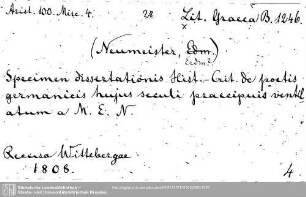 Arist. 100. Misc. 4. 28 Lit. Graeca B. 1246.
(Neumeister, Edm.)
Erdm.
Specimen dissertationis Hist. Crit. de poetis
germanicis hujus seculi praecipuis ventil
atum a M. E. N.
Recusa Wittebergae
1808.
4
Sächsische Landesbibliothek -
Staats- und Universitätsbibliothek Dresden